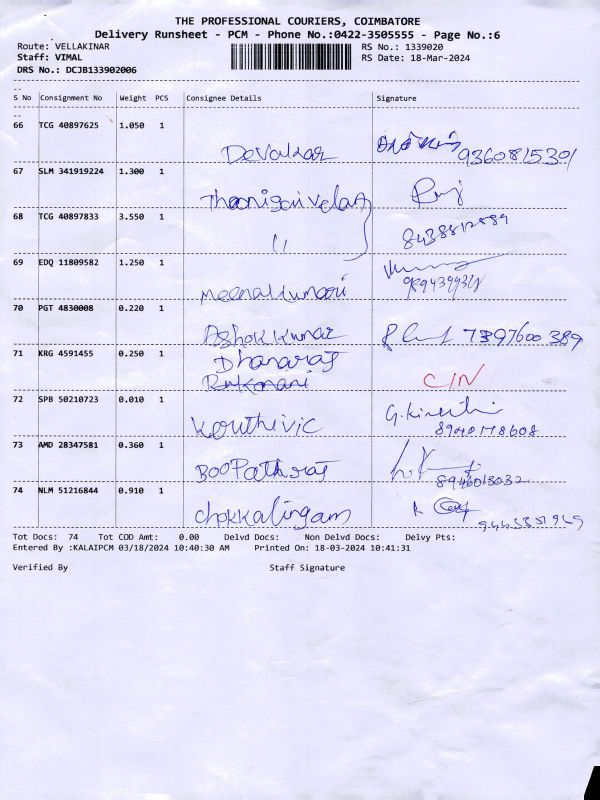 THE PROFESSIONAL COURIERS, COIMBATORE
Delivery Runsheet - PCM - Phone No.:0422-3505555 - Page No.:6
Route: VELLAKINAR RS No.: 1339020
Staff: VIMAL RS Date: 18-Mar-2024
DRS No.: DCJB133902006
S No Consignment No Weight PCS Consignee Details Signature
66 TCG 40897625 1.050 1
Devakar 9360815301
67 SLM 341919224 1.300 1
Thanigaivelan
68 TCG 40897833 3.550 1
11 8438812889
69 EDQ 11809582 1.250 1
meenalkumari
70 PGT 4830008 0.220 1
Ashok kumar 7397600389
71 KRG 4591455 0.250 1
Dhanaraj
C/N
72 SPB 50210723 0.010 1
Kouthivic 8940178608
73 AMD 28347581 0.360 1
BooPathiraj 8946013032
74 NLM 51216844 0.910 1
chokkalingam
Tot Docs: 74 Tot COD Amt: 0.00 Delvd Docs: Non Delvd Docs: Delvy Pts:
Entered By :KALAIPCM 03/18/2024 10:40:30 AM Printed On: 18-03-2024 10:41:31
Verified By Staff Signature